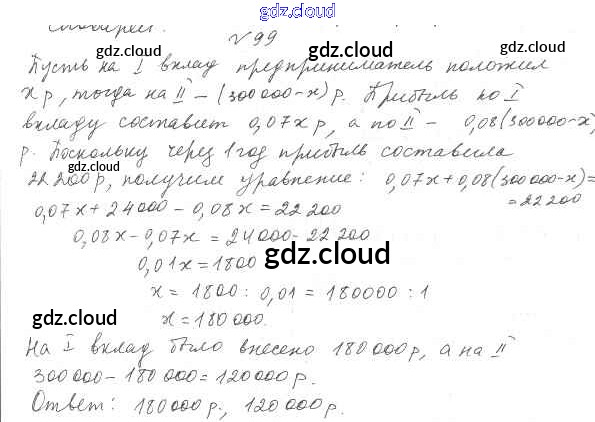 gdz.cloud
№99
gdz.cloud gdz.cloud
Пусть на I вклад предприниматель положил
x р, тогда на II – (300 000-x) р. Прибыль по I
gdz.cloud
вкладу составит 0,07x р, а по II – 0,08(300000-x)
р. Поскольку через 1 год прибыль составила
gdz.cloud
22 200 р, получим уравнение: 0,07x + 0,08(300000-x)=
= 22 200
0,07x + 24000 - 0,08x = 22 200
0,08x - 0,07x = 24000 - 22 200
0,01x = 1800
gdz.cloud
x = 1800 : 0,01 = 180000 : 1
gdz.cloud
x = 180 000.
gdz.cloud
На I вклад было внесено 180 000 р, а на II
300 000 - 180 000 = 120 000 р.
gdz.cloud gdz.cloud
Ответ: 180 000 р., 120 000 р.